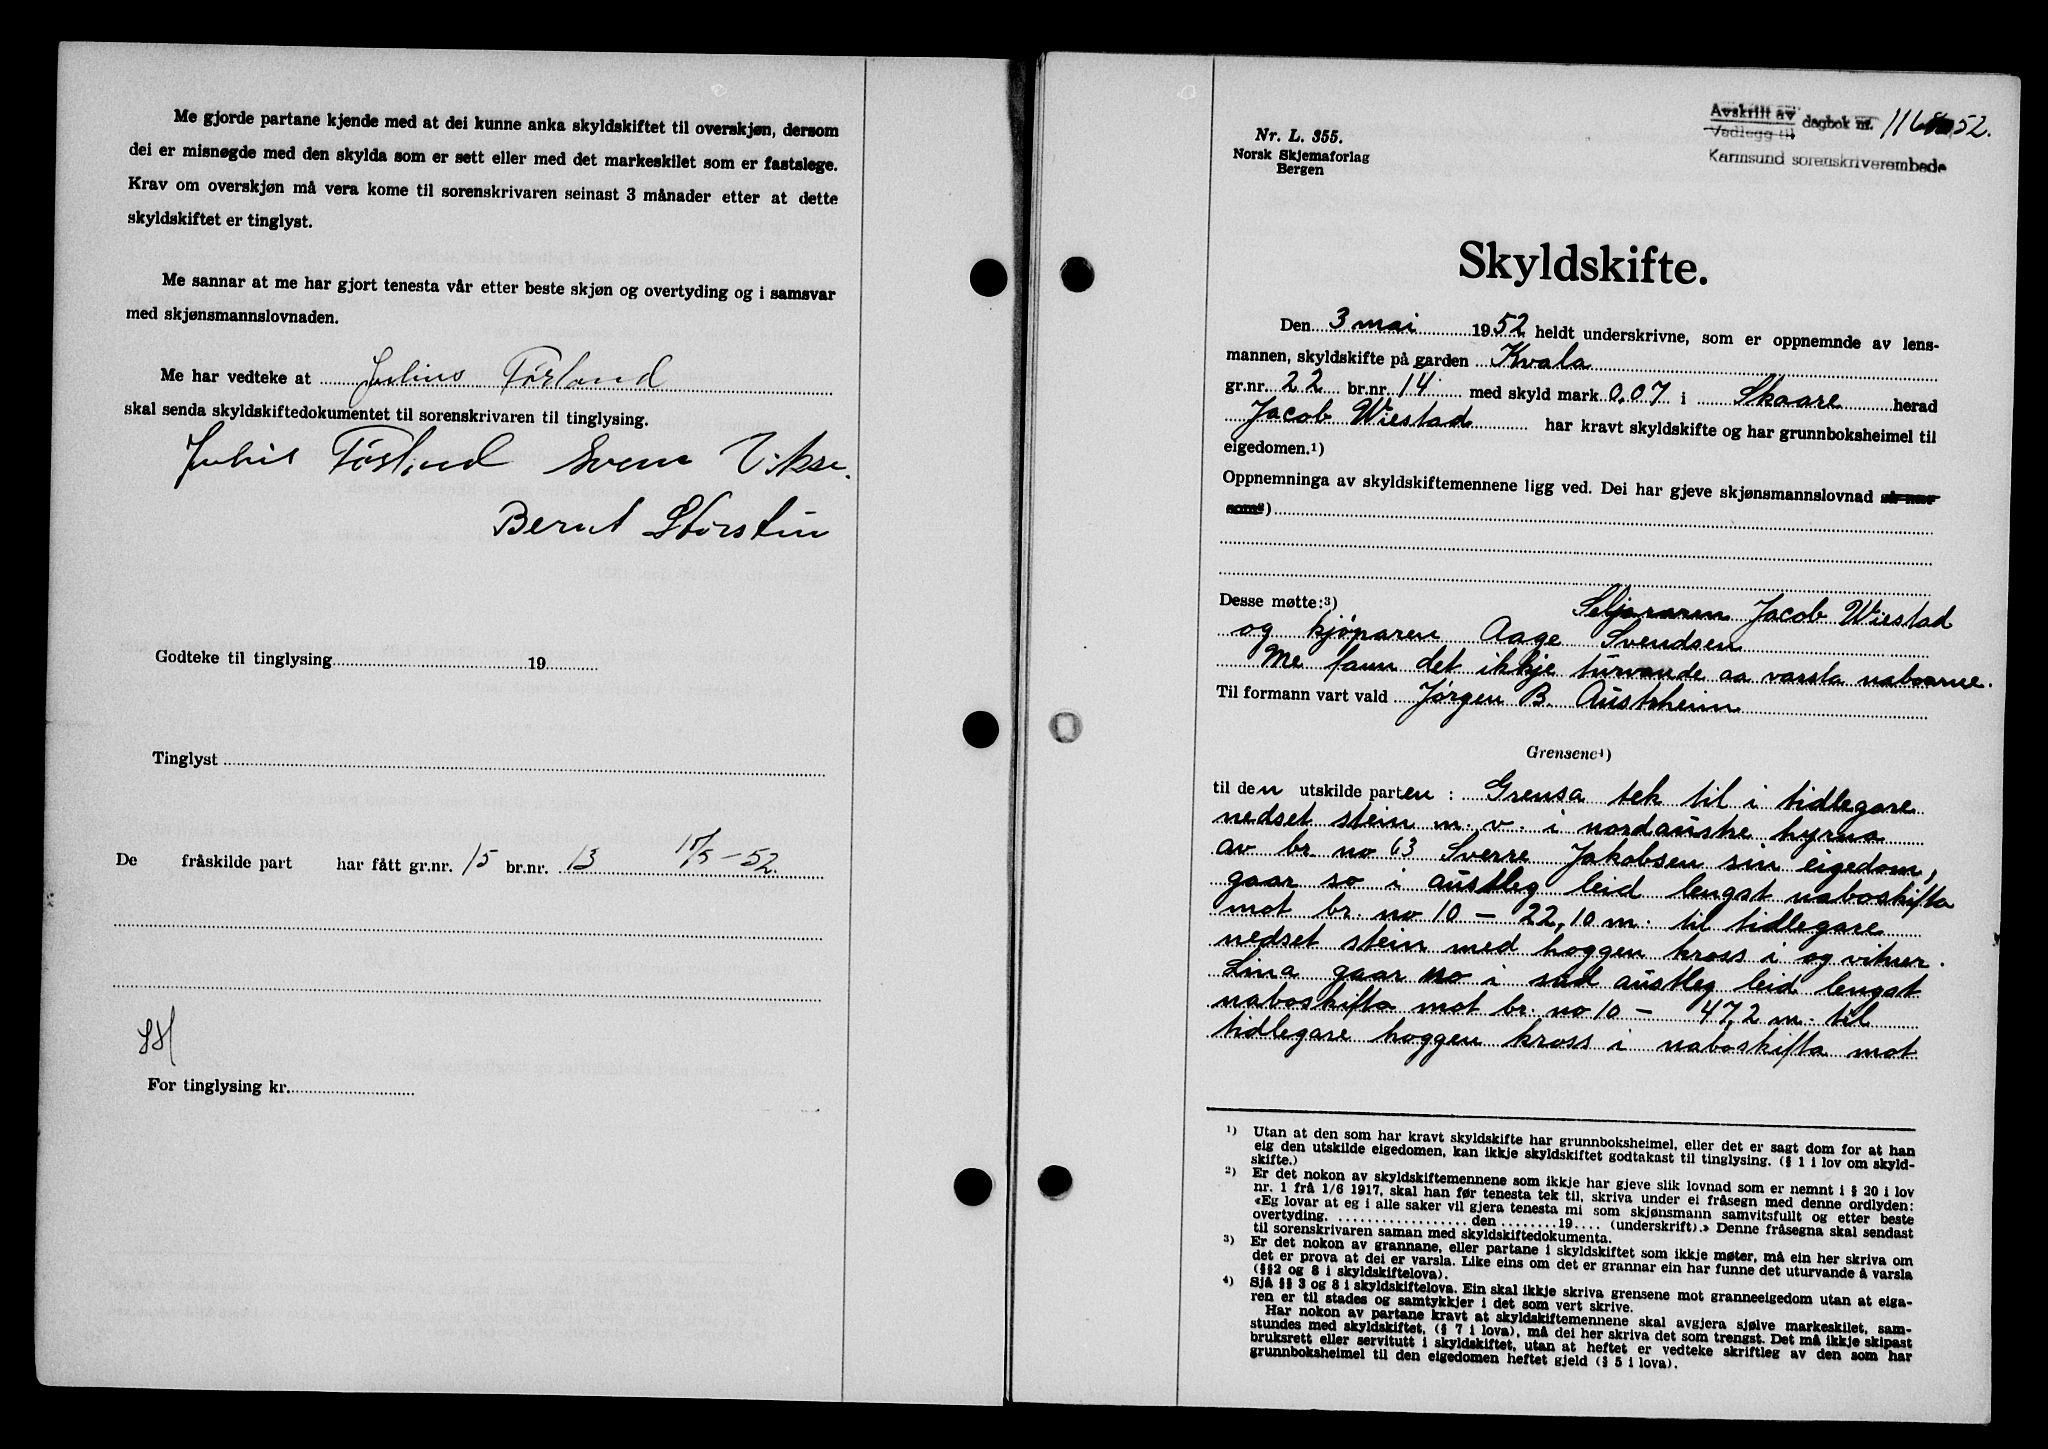 Me gjorde partane kjende med at dei kunne anka skyldskiftet til overskjøn, dersom
dei er misnøgde med den skylda som er sett eller med det markeskilet som er fastslege.
Krav om overskjøn må vera kome til sorenskrivaren seinast 3 månader etter at dette
skyldskiftet er tinglyst.
Me sannar at me har gjort tenesta vår etter beste skjøn og overtyding og i samsvar
med skjønsmannslovnaden.
Me har vedteke at Julius Førland
skal senda skyldskiftedokumentet til sorenskrivaren til tinglysing.
Julius Førland Svein Vikse.
Bernt Storstein
Godteke til tinglysing 19
Tinglyst
De fråskilde part har fått gr.nr. 15 br.nr. 13 15/5-52.
SH
For tinglysing kr.
Avskrift av
Vedlegg til dagbok nr. 1168 52.
Karmsund sorenskriverembede
Nr. L. 355.
Norsk Skjemaforlag
Bergen
Skyldskifte.
Den 3 mai 1952 heldt underskrivne, som er oppnemnde av lens-
mannen, skyldskifte på garden Kvala
gr.nr. 22 br.nr. 14 med skyld mark 0,07 i Skaare herad
Jacob Wiestad har kravt skyldskifte og har grunnboksheimel til
eigedomen.1)
Oppnemninga av skyldskiftemennene ligg ved. Dei har gjeve skjønsmannslovnad så nær
som2)
Desse møtte:3) Seljararen Jacob Wiestad
og kjøparen Aage Svendsen
Me fann det ikkje turvande aa varsla naboarne.
Til formann vart vald Jørgen B. Austrheim
Grensene4)
til den utskilde parten: Grensa tek til i tidlegare
nedset stein m. v. i nordauske hyrna
av br. no 63 Sverre Jakobsen sin eigedom,
gaar so i austleg leid lengst naboskifta
mot br. no 10 - 22,10 m. til tidlegare
nedset stein med hoggen kross i og vitner.
Lina gaar no i sud austleg leid lengst
naboskifta mot br. no 10 - 47,2 m. til
tidlegare hoggen kross i naboskifta mot
1) Utan at den som har kravt skyldskifte har grunnboksheimel, eller det er sagt dom for at han
eig den utskilde eigedomen, kan ikkje skyldskiftet godtakast til tinglysing. (§ 1 i lov om skyld-
skifte.)
2) Er det nokon av skyldskiftemennene som ikkje har gjeve slik lovnad som er nemnt i § 20 i lov
nr. 1 frå 1/6 1917, skal han før tenesta tek til, skriva under ei fråsegn med denne ordlyden:
«Eg lovar at eg i alle saker vil gjera tenesta mi som skjønsmann samvitsfullt og etter beste
overtyding. den 19 (underskrift).» Denne fråsegna skal sendast
til sorenskrivaren saman med skyldskiftedokumenta.
3) Er det nokon av grannane, eller partane i skyldskiftet som ikkje møter, må ein her skriva om
det er prova at dei er varsla. Like eins om det er grannar ein har funne det uturvande å varsla
(§§2 og 8 i skyldskiftelova).
4) Sjå §§ 3 og 8 i skyldskiftelova. Ein skal ikkje skriva grensene mot granneeigedom utan at eiga-
ren er til stades og samtykkjer i det som vert skrive.
Har nokon av partane kravt at skyldskiftemennene skal avgjera sjølve markeskilet, sam-
stundes med skyldskiftet, (§ 7 i lova), må dei her skriva det som trengst. Det må ikkje skipast
bruksrett eller servitutt i skyldskiftet, utan at heftet er vedteke skriftleg av den som har
grunnboksheimel til den eigedomen heftet gjeld (§ 5 i lova).